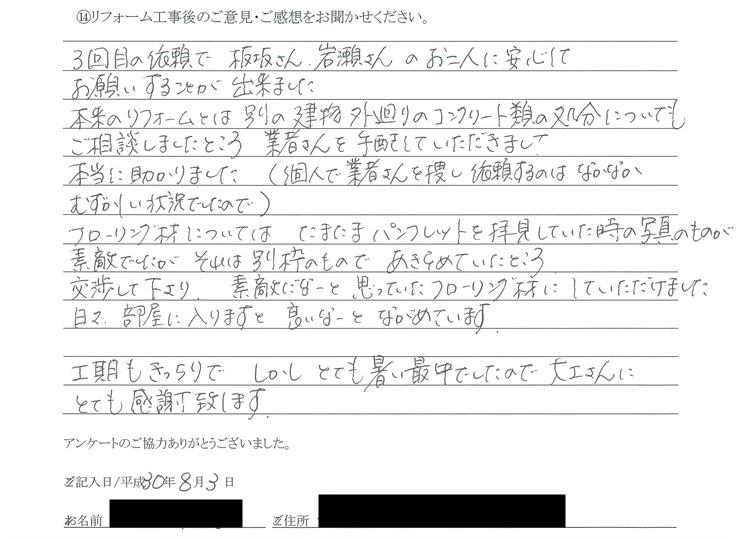 ⑭リフォーム工事後のご意見・ご感想をお聞かせください。
3回目の依頼で 板坂さん、岩瀬さん のお二人に安心して
お願いすることが 出来ました
本来のリフォームとは 別の建物 外廻りのコンクリート類の処分についても
ご相談しましたところ 業者さんを手配をしていただきまして
本当に助かりました (個人で業者さんを捜し依頼するのは なかなか
むずかしい状況でしたので)
フローリング材については たまたま パンフレットを拝見していた時の写真のものが
素敵でしたが それは別枠のもので あきらめていたところ
交渉して下さり、素敵だなーと 思っていたフローリング材に していただけました
日々、部屋に入りますと 良いなーと ながめています
工期もきっちりで しかし とても暑い最中でしたので 大工さんに
とても 感謝致します
アンケートのご協力ありがとうございました。
ご記入日/平成30年8月3日
お名前 ご住所